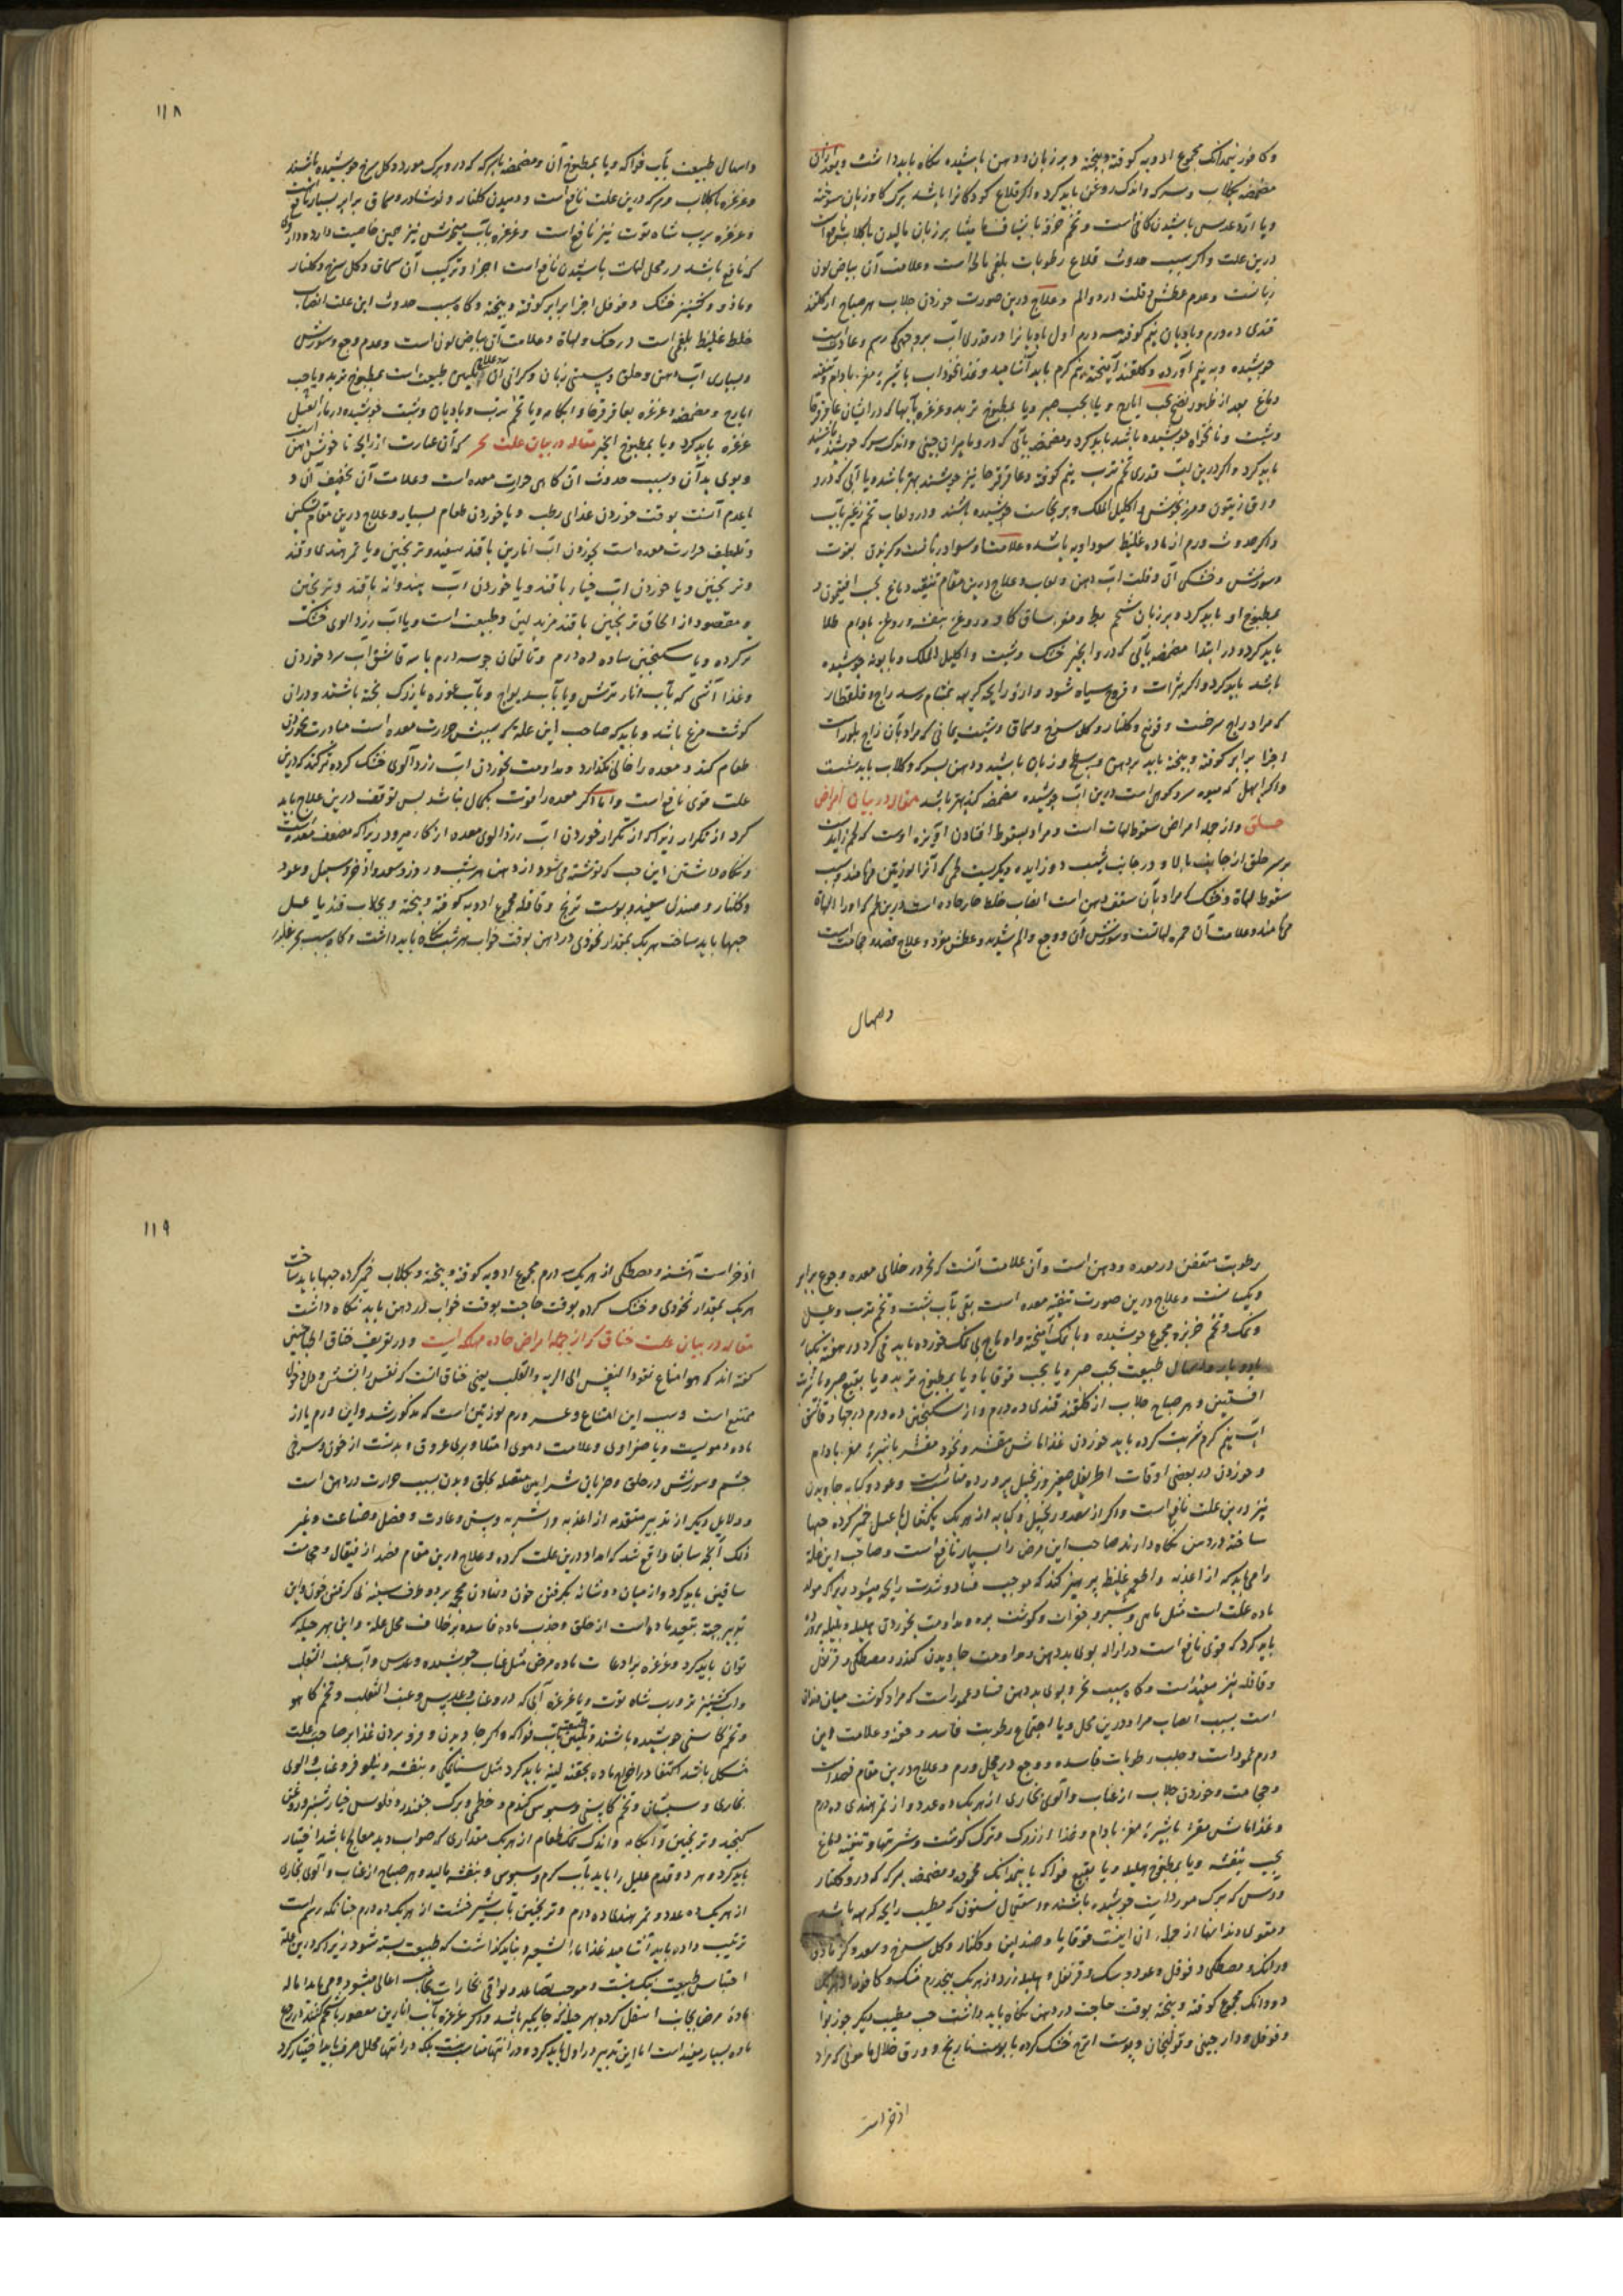 و کافور نیمدانک مجموع ادویه کوفته و بیخته و بر زبان و دهن پاشیده نگاه باید داشت و بعد از آن
مضمضه بکلاب و سرکه و اندک روغن باید کرد و اکر قلاع کودکانرا باشد برک کاو زبان سوخته
و یا آرد عدس پاشیدن کافی است و تخم خرفه با بر زبان مالیدن با کلاب
درین علت و اکر سبب حدوث قلاع رطوبات بلغمی مالح است و علامت آن بیاض لون
زبانست و عدم عطش و قلت درد و الم و علاج درین صورت خوردن جلاب هر صباح از کلقند
قندی ده درم و بادیان نیم کوفته سه درم اول بادیانرا در قدری آب بروجهی که رسم و عادتست
جوشیده و به نیم آورده و کلقند آمیخته نیم کرم باید آشامید و غذا نخوداب با شیره مغز بادام و تنقیه
دماغ بعد از ظهور نضج بحب ایارج و یا بحب صبر و یا بمطبوخ تربد و غرغره بآبها که در ایشان عاقرقرحا
و شبت و نانخواه جوشیده باشد باید کرد و مضمضه بآبی که درو مامیران چینی و اندک سرکه جوشیده باشند
باید کرد و اکر درین آب قدری تخم ترب نیم کوفته و عاقرقرحا نیز جوشند بهتر باشد و یا آبی که درو
ورق زیتون و مرزنجوش و اکلیل الملک و برنجاسف جوشیده باشند و درو لعاب تخم
و اکر حدوث ورم از ماده غلیظ سوداویه باشد علامت او سواد زبانست و
و سوزش و خشکی آن و قلت آب دهن و لعاب و علاج درین مقام تنقیه دماغ بحب افتیمون و
بمطبوخ او باید کرد و بر زبان شحم بط و مغز ساق کاو و روغن بنفشه و روغن بادام طلا
باید کرد و در ابتدا مضمضه بآبی که درو انجیر خشک و شبت و اکلیل الملک و بابونه جوشیده
باشد باید کرد و اکر بثرات و قروح سیاه شود و ازو رایحه کریه بمشام رسد زاج و قلقطار
که مراد زاج سرخست و فوتنج و کلنار و کل سرخ و سماق و شب یمانی که مراد بآن زاج بلوراست
اجزا برابر کوفته و بیخته باید بر دهن و بسطح زبان پاشید و دهن بسرکه و کلاب باید شست
و اکر ابهل که میوه سرو کوهی است درین آب جوشیده مضمضه کنند بهتر باشد مقاله در بیان امراض
حلق و از جمله امراض سقوط لهات است و مراد بسقوط افتادن اویزه اوست که لحم زایدیست
بر سر حلق از جانب بالا و در جانب شیب دو زایده دیکریست لحمی که آنرا لوزتین می‌نامند و سبب
سقوط لهاة و خنک که مراد بآن سقف دهن است انصباب خلط حار حاده است درین لحم که او را لهاة
می‌نامند و علامت آن حمره لهاتست و سوزش آن و وجع و الم شدید و عطش مفرط و علاج فصد و حجامت است
و اسهال
۱۱۸
و اسهال طبیعت بآب فواکه و یا بمطبوخ آن و مضمضه بسرکه که درو برک مورد و کل سرخ جوشیده باشند
و غرغره با کلاب و سرکه درین علت نافع است و دمیدن کلنار و نوشادر و سماق برابر بسیار نافع
و غرغره برب شاه توت نیز نافع است و غرغره بآب میخوش نیز همین خاصیت دارد و داروی
که نافع باشد در محل لهات پاشیدن نافع است اجزا و ترکیب آن سماق و کل سرخ و کلنار
و مازو و کشنیز خشک و فوفل اجزا برابر کوفته و بیخته و کاه سبب حدوث این علت انصباب
خلط غلیظ بلغمی است در حنک و لهاة و علامت آن بیاض لون است و عدم وجع و سوزش
و بسیاری آب دهن و حلق و سستی زبان و کرانی آن و علاج تلیین طبیعت است بمطبوخ تربد و یا حب
ایارج و مضمضه و غرغره بعاقرقرحا و ابکامه و یا تخم ترب و بادیان و شبت جوشیده در ماء العسل
غرغره باید کرد و یا بمطبوخ انجیر مقاله در بیان علت بخر که آن عبارت از رایحه ناخوش دهن است
و بوی بد آن و سبب حدوث آن کاهی حرارت معده است و علامت آن تخفیف آن و
یا عدم آنست بوقت خوردن غذای رطب و یا خوردن طعام بسیار و علاج درین مقام تسکین
و تلطیف حرارت معده است بخوردن آب انارین با قند سفید و ترنجبین و یا تمر هندی و قند
و ترنجبین و یا خوردن آب خیار با قند و یا خوردن آب هندوانه با قند و ترنجبین
و مقصود از الحاق ترنجبین با قند مزید لین و طبیعت است و یا آب زردالوی خشک
تر کرده و یا سکنجبین ساده ده درم و تالقان جو سه درم با سه قاشق آب سرد خوردن
و غذا آشی که بآب انار ترش و یا بآب ریواج و بآب غوره با زرک پخته باشند و دران
کوشت مرغ باشد و باید که صاحب این علة که سببش حرارت معده است مبادرت بخوردن
طعام کند و معده را خالی نکذارد و مداومت بخوردن آب زردآلوی خشک کرده تر کند که درین
علت قوی نافع است و اما اکر معده را قوت بکمال نباشد پس توقف درین علاج باید
کرد از تکرار زیرا که از تکرار خوردن آب زردالوی معده از کار میرود زیرا که مضعف معده است
و نکاه داشتن این حب که نوشته می‌شود در دهن هر شب و روز و سعد و اذخر و سنبل و عود
و کلنار و صندل سفید و پوست ترنج و قاقله مجموع ادویه کوفته و بیخته و بجلاب قند یا عسل
حبها باید ساخت هر یک بمقدار نخودی در دهن بوقت خواب هر شب نکاه باید داشت و کاه سبب بخر غلبه
رطوبت متعفن در معده و دهن است و آن علامت آنست که بخر در خلای معده و جوع برابر
و یکسانست و علاج درین صورت تنقیه معده است بقی بآب شبت و تخم ترب و عسل
و نمک و تخم خربزه مجموع جوشیده و با نمک آمیخته و یا ماهی نمک خورده باید قی کرد در هفته یکبار
یا دوبار و اسهال طبیعت بحب صبر و یا بحب قوقایا و یا بمطبوخ تربد و یا بنقیع صبر و یا شربت
افسنتین و هر صباح جلاب از کلقند قندی ده درم و از سکنجبین ده درم در چهار قاشق
آب نیم کرم شربت کرده باید خوردن غذا ماش مقشر و نخود مقشر با شیره مغز بادام
و خوردن در بعضی اوقات اطریفل صغیر و زنجبیل پرورده مناسبست و عود و کبابه جاویدن
نیز درین علت نافع است و اکر از سعد و زنجبیل و کبابه از هر یک یکمثقال با عسل خمیر کرده حبها
ساخته در دهن نکاه دارند صاحب این مرض را بسیار نافع است و صاحب این علة
را می‌باید که از اغذیه و اطعمه غلیظ پرهیز کند که موجب فساد و شدت رایحه میشود زیرا که مولد
ماده علت است مثل ماهی و شیر و جغرات و کوشت بره و مداومت بخوردن هلیله و بلیله پرورده
باید کرد که قوی نافع است در ازاله بوی بد دهن و مداومت جاویدن کندر و مصطکی و قرنفل
و قاقله نیز مفید است و کاه سبب بخر و بوی بد دهن فساد عمور است که مراد کوشت میان دندان
است بسبب انصباب مواد درین محل و یا اجتماع رطوبت فاسد و عفونه و علامت این
ورم عمور است و جلب رطوبات فاسده و وجع در محل ورم و علاج درین مقام فصد است
و حجامت و خوردن جلاب از عناب و آلوی بخاری از هر یک ده عدد و از تمر هندی ده درم
و غذا ماش مقشر با شیره مغز بادام و غذا از زرک و ترک کوشت و شیرینیها و تنقیه دماغ
بحب بنفشه و یا بمطبوخ هلیله و یا بنقیع فواکه با نیمدانک محموده و مضمضه بسرکه که درو کلنار
و برک مورد آب جوشیده باشند و استعمال سنون که مطیب رایحه کریهه باشد
و مقوی دندانها از جمله آن اینست قوقایا و صندلین و کلنار و کل سرخ و سعد و کزمازج
و رامک و مصطکی و فوفل و عود و سک و قرنفل و هلیله زرد از هر یک پنجدرم مشک و کافور از هر یک
دو دانک مجموع کوفته و بیخته بوقت حاجت در دهن نکاه باید داشت حب مطیب دیکر جوز بوا
و فوفل و دارچینی و قولنجان و پوست اترج خشک کرده با پوست نارنج و ورق خلال مامونی که مراد
اذخر است
۱۱۹
اذخر است آشنه و مصطکی از هر یک سه درم مجموع ادویه کوفته و بیخته و بکلاب خمیر کرده حبها باید ساخت
هر یک بمقدار نخودی و خشک کرده بوقت حاجت بوقت خواب در دهن باید نکاه داشت
مقاله در بیان علت خناق که از جمله امراض حاده مهلکه است و در تعریف خناق اطبا چنین
کفته اند که هو امتناع نفوذ النفس الی الریه و القلب یعنی خناق آنست که نفس را بشش و دل دخول
ممتنع است و سبب این امتناع و عسر ورم لوزتین است که مذکور شد و این ورم یا از
ماده دمویست و یا صفراوی و علامت دموی امتلا و پری عروق و بدنست از خون و سرخی
چشم و سوزش در حلق و ضربان شرایین متصله بحلق و بدن بسبب حرارت در دهن است
و دلایل دیکر از تدبیر متقدمه از اغذیه و اشربه و سن و عادت و فصل و صناعت و غیر
ذلک آنچه سابقا واقع شد که امداد درین علت کرده و علاج درین مقام فصد از قیفال و حجامت
ساقین باید کرد و از میان دو شانه بکرفتن خون و نهادن محجمه بر دو طرف سینه بی کرفتن خون و این
تدبیر جهة تبعید ماده است از حلق و جذب ماده فاسده بخلاف محل علة و این بهر حیله که
توان باید کرد و غرغره برادعات ماده مرض مثل عناب جوشیده و عدس و آب عنب الثعلب
و آب کشنیز تر و رب شاه توت و یا غرغره آبی که درو عناب و عدس و عنب الثعلب و تخم کاهو
و تخم کاسنی جوشیده باشند و تلیین طبیعت بآب فواکه و اکر جاویدن و فرو بردن غذا بر صاحب علت
مشکل باشد اکتفا در اخراج ماده بحقنه لینه باید کرد مثل سنامکی و بنفشه و نیلوفر و عناب و الوی
بخاری و سپستان و تخم کاسنی و سبوس کندم و خطمی و برک چغندر و فلوس خیار شنبر و روغن
کنجد و ترنجبین و آبکامه و اندک نمک طعام از هر یک مقداری که صواب دید معالج باشد اختیار
باید کرد و هر دو قدم علیل را باید بآب کرم و سبوس و بنفشه مالید و هر صباح از عناب و آلوی بخاری
از هر یک ده عدد و تمر هندی ده درم و ترنجبین بآب شیرخشت از هر یک ده درم چنانکه رسم است
ترتیب داده باید آشامید غذا ماء الشعیر و نباید کذاشت که طبیعت بسته شود زیرا که درین علة
احتباس طبیعت نیک نیست و موجب تصاعد و تراقی بخارات بجانب اعالی میشود و می‌باید اماله
ماده مرض بجانب اسفل کرده بهر حیله که جایکیر باشد و اکر غرغره بآب انارین معصور با شحم کنند در دفع
ماده بسیار مفید است اما این تدبیر در اول باید کرد و در انتها مناسب نیست بلکه در انتها محلل صرف باید اختیار کرد